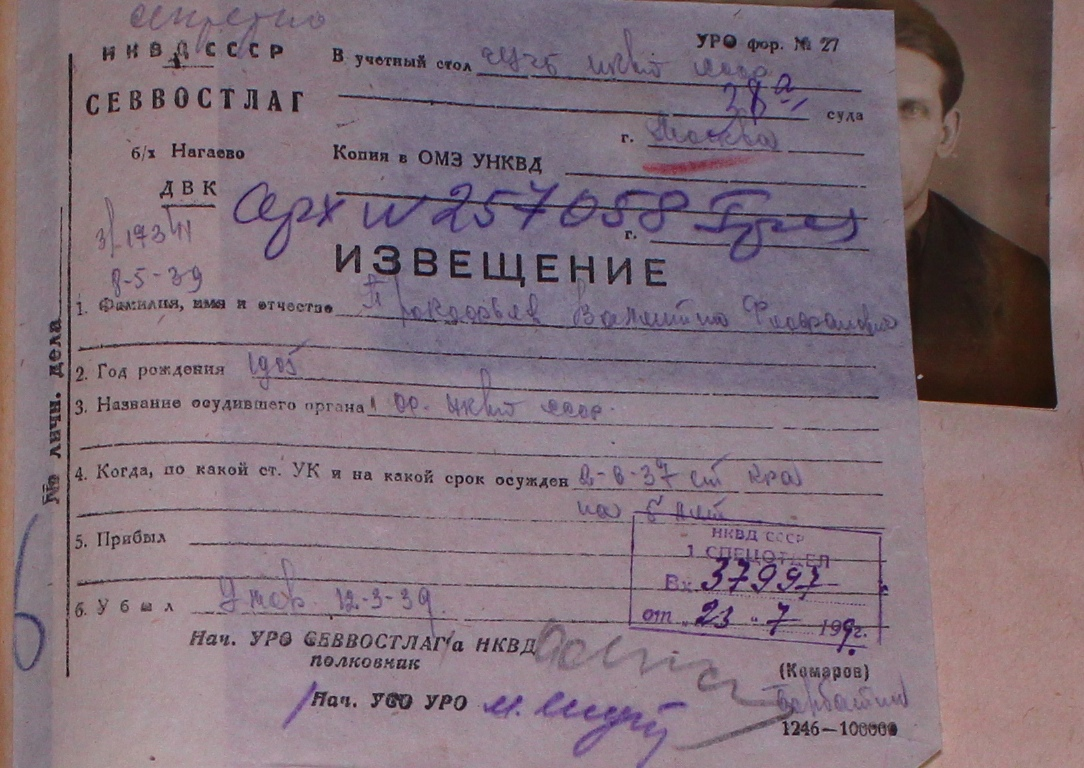 секретно
НКВД СССР
СЕВВОСТЛАГ
б/х Нагаево
ДВК
8-5-39
УРО фор. № 27
В учетный стол НКВД СССР
38 суда
г. Москва
Копия в ОМЗ УНКВД
Арх № 257058
г.
ИЗВЕЩЕНИЕ
№ личн. дела
1. Фамилия, имя и отчество Валентин
2. Год рождения 1905
3. Название осудившего органа ос. НКВД СССР
4. Когда, по какой ст. УК и на какой срок осужден 2-8-37 ст кра
на 5 лет
5. Прибыл
6. Убыл Умер 12-3-39
НКВД СССР
1 СПЕЦОТДЕЛ
Вх. 37997
от "23" 7 1949г.
Нач. УРО СЕВВОСТЛАГ'а НКВД
полковник
(Комаров)
Нач. УСО УРО
1246—100000